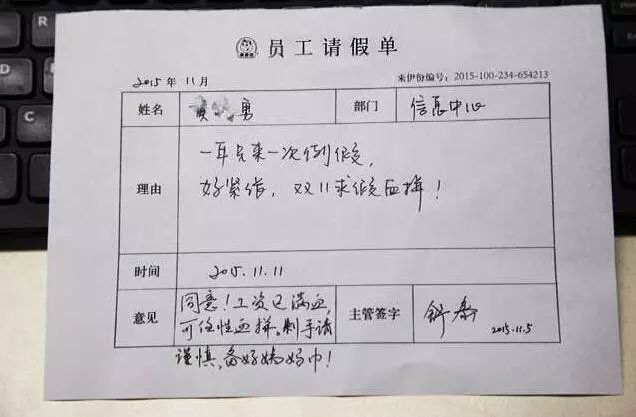 员工请假单
2015年 11月
来伊份编号：2015-100-234-654213
姓名 勇 部门 信息中心
一年只来一次例假,
理由
好紧张, 双11求假血拼！
时间 2015.11.11
同意！工资已满血,
意见 可任性血拼。剁手请 主管签字 2015.11.5
谨慎,备好姨妈巾！